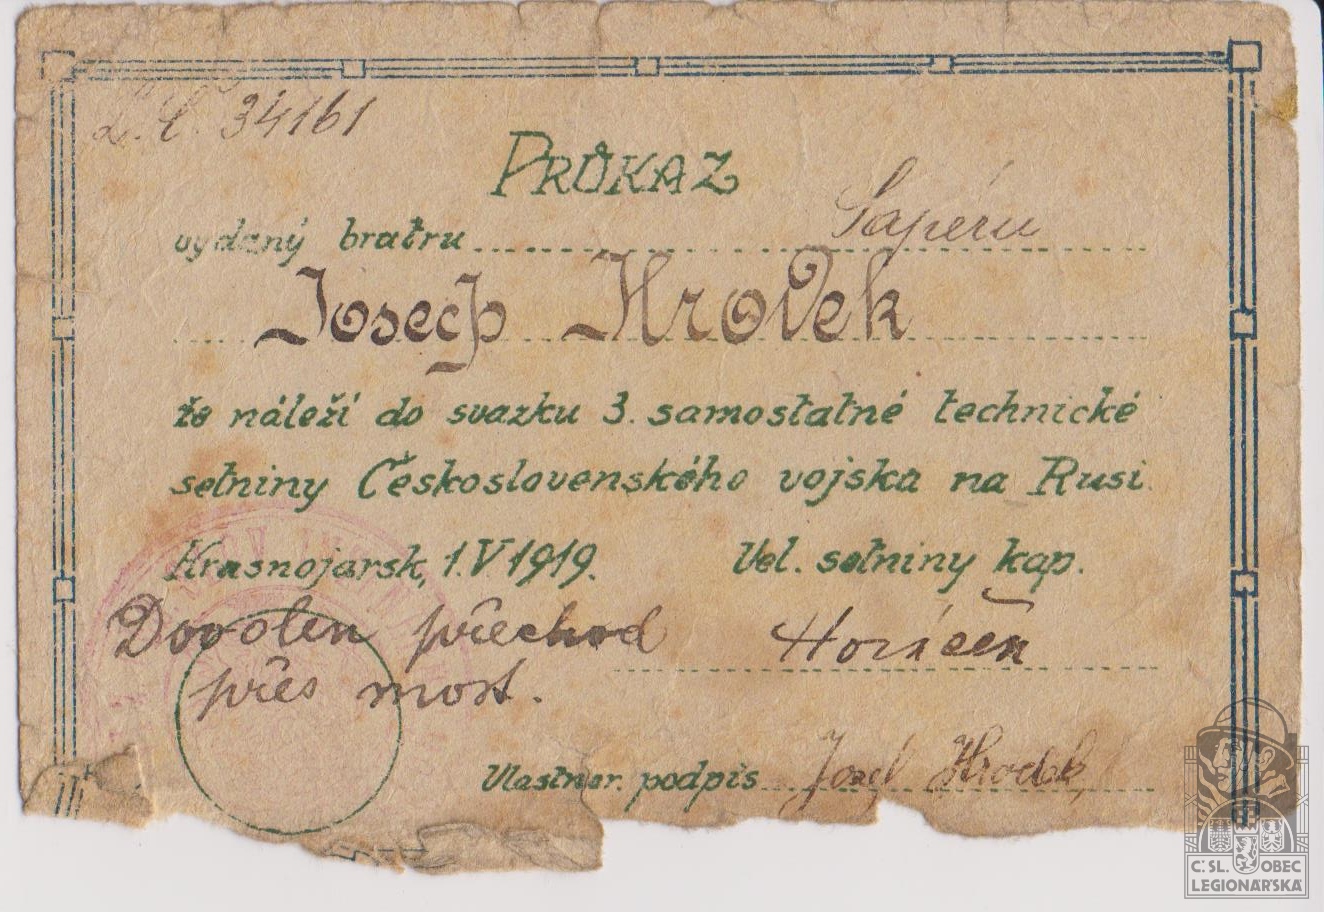 L. Č. 34161
PRŮKAZ
vydaný bratru Sapéru
Josef Hrodek
že náleží do svazku 3. samostatné technické
setniny Československého vojska na Rusi.
Krasnojarsk, 1.V 1919. Vel. setniny kap.
Dovolen přechod
přes most.
Horáček
Vlastnor. podpis Josef Hrodek
Č:SL. OBEC
LEGIONÁŘSKÁ